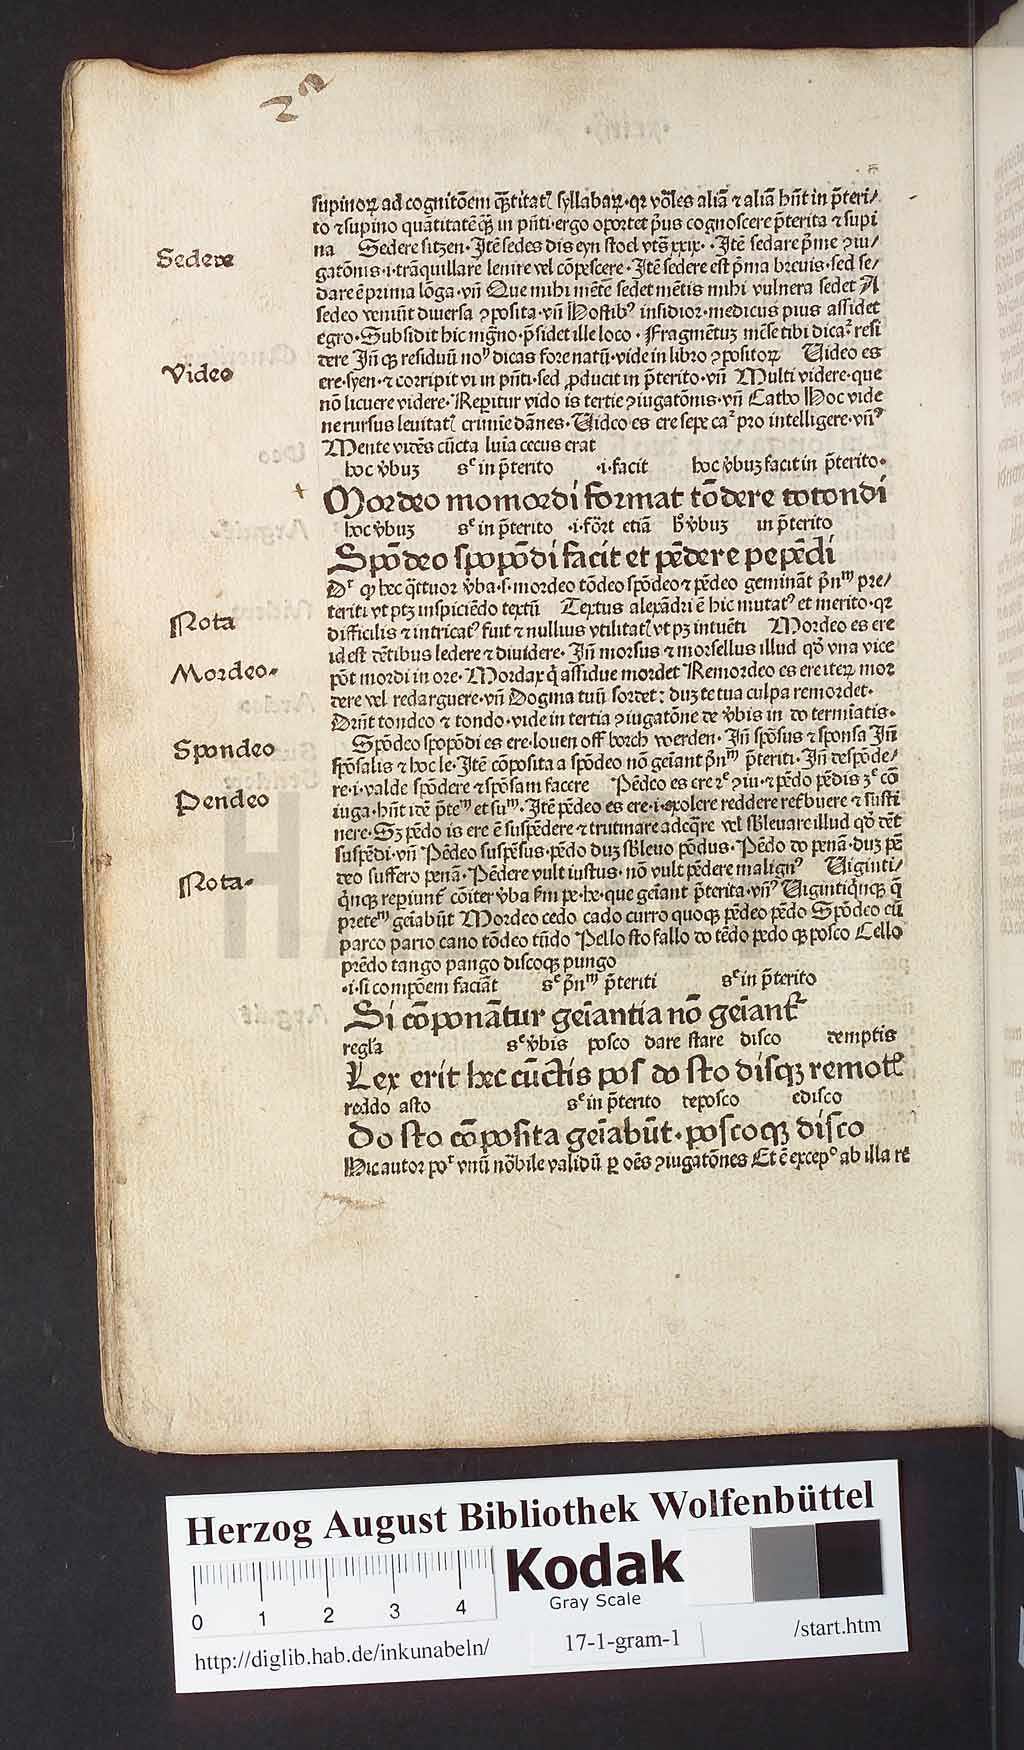 supinoꝝ ad cognitōem qͣ̄titatꝭ syllabaꝝ · qꝛ vo̅les aliā ⁊ aliā hn̄t in p̄teri/
to ⁊ supino quātitatē qͣꝫ in pn̄ti · ergo oportet pͥus cognoscere p̄terita ⁊ supi
na Sedere sitzen · Itē sedes dis eyn stoel vtꝫ xxix · Itē sedare pͥme ꝯiu/
Sedere
gatōnis · i · trāquillare lenire vel cōpescere · Itē sedere est pͥma breuis · sed se/
dare ē prima lōga · vn̄ Que mihi mētē sedet mētis mihi vulnera sedet A
sedeo veniūt diuersa ꝯposita · vn̄ Hostibꝰ insidior · medicus pius assidet
egro · Subsidit hic mgͣno · p̄sidet ille loco · Fragmētuꝫ mēse tibi dicaᷣ resi
dere Jn̄ qꝫ residuū noᵘ dicas fore natū · vide in libro ꝯpositoꝝ Uideo es
Video
ere · syen · ⁊ corripit vi in pn̄ti · sed ꝓducit in p̄terito · vn̄ Multi videre · que
nō licuere videre · Reperitur vido is tertie ꝯiugatōnis · vn̄ Catho Hoc vide
ne rursus leuitatꝭ crimīe dānes · Uideo es ere sepe caᷣ pro intelligere · vn̄ᵈ
Mente vidēs cūcta luīa cecus erat
hoc v̄buꝫ sᶜ in p̄terito · i · facit hoc v̄buꝫ facit in p̄terito ·
Mordeo momordi format tōdere totondi
hoc v̄buꝫ sᶜ in p̄terito · i · fōrt etiā hͦ v̄buꝫ in p̄terito
Spōdeo spopōdi facit et pēdere pepēdi
Dᷣ ꝙ hec qͣttuor v̄ba · s · mordeo tōdeo spōdeo ⁊ pēdeo gemināt pͥn̄ᵐ pre/
teriti vt ptꝫ inspiciēdo textū Textus alexādri ē hic mutatꝰ et merito · qꝛ
Nota
difficilis ⁊ intricatꝰ fuit ⁊ nullius vtilitatꝭ vt pꝫ intuēti Mordeo es ere
id est dētibus ledere ⁊ diuidere · Jn̄ morsus ⁊ morsellus illud qd̄ vna vice
Mordeo ·
pōt mordi in ore · Mordax qͥ assidue mordet Remordeo es ere iteꝝ mor
dere vel redarguere · vn̄ Dogma tuū sordet : duꝫ te tua culpa remordet ·
Drn̄t tondeo ⁊ tondo · vide in tertia ꝯiugatōne de v̄bis in do termīatis ·
Spondeo
Spōdeo spopōdi es ere · louen off borch werden · Jn̄ spōsus ⁊ sponsa Jn̄
spōsalis ⁊ hoc le · Itē cōposita a spōdeo nō geīant pͥn̄ᵐ p̄teriti · Jn̄ despōde/
re · i · valde spōdere ⁊ spōsam facere Pēdeo es ere ꝛᵉ ꝯiu · ⁊ pēdo pēdis ʒᵉ cō
Pendeo
iuga · hn̄t idē p̄teᵐ et suᵐ · Itē pēdeo es ere · i · exolere reddere ret̄buere ⁊ susti
nere · Sꝫ pēdo is ere ē suspēdere ⁊ trutinare adeqͣre vel sb̄leuare illud qd̄ dēt
suspēdi · vn̄ Pēdeo suspēsus · pēdo duꝫ sb̄leuo pōdus · Pēdo do penā · duꝫ pē
deo suffero penā · Pēdere vult iustus · nō vult pēdere malignꝰ Uiginti/
Nota ·
qͥnqꝫ reperiunt̄ cōiter v̄ba km̄ pe · he · que geīant p̄terita · vn̄ᵈ Uigintiqͥnqꝫ qͣ
preteᵐ geīabūt Mordeo cedo cado curro quoqꝫ pēdeo pēdo Spōdeo cū
parco pario cano tōdeo tūdo Pello sto fallo do tēdo pedo qꝫ posco Cello
prēdo tango pango discoqꝫ pungo
· i · si compōem faciāt sᶜ pͥn̄ᵐ p̄teriti sᶜ in p̄terito
Si cōponātur geīantia nō geīantᷣ
regl̄a sᶜ v̄bis posco dare stare disco demptis
Lex erit hec cūctis pos do sto disqꝫ remotꝭ
reddo asto sᶜ in p̄terito deposco edisco
do sto cōposita geīabūt · poscoqꝫ disco
Hic autor poᷣ vnū nōbile validū ꝑ oēs ꝯiugatōnes Et ē excepº ab illa re
Herzog August Bibliothek Wolfenbüttel
Kodak
Gray Scale
0 1 2 3 4
http://diglib.hab.de/inkunabeln/ 17-1-gram-1 /start.htm